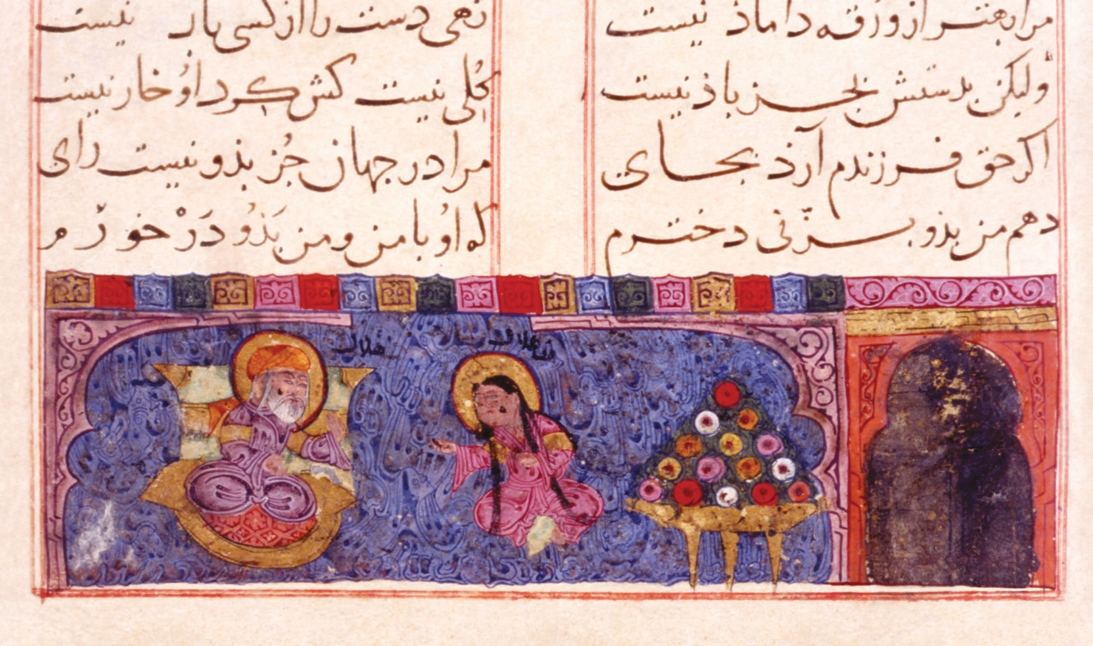 مرا بهتر از ورقه داماذ نیست تهی دست را از کسی یار نیست
ولیکن بدستش بجز باذ نیست کلی نیست کش کرد او خار نیست
اکر حق فرزندم آرذ بجای مرا در جهان جز بذو نیست رای
دهم من بذو دخترم که او با من و من بذو در خورم
هلال